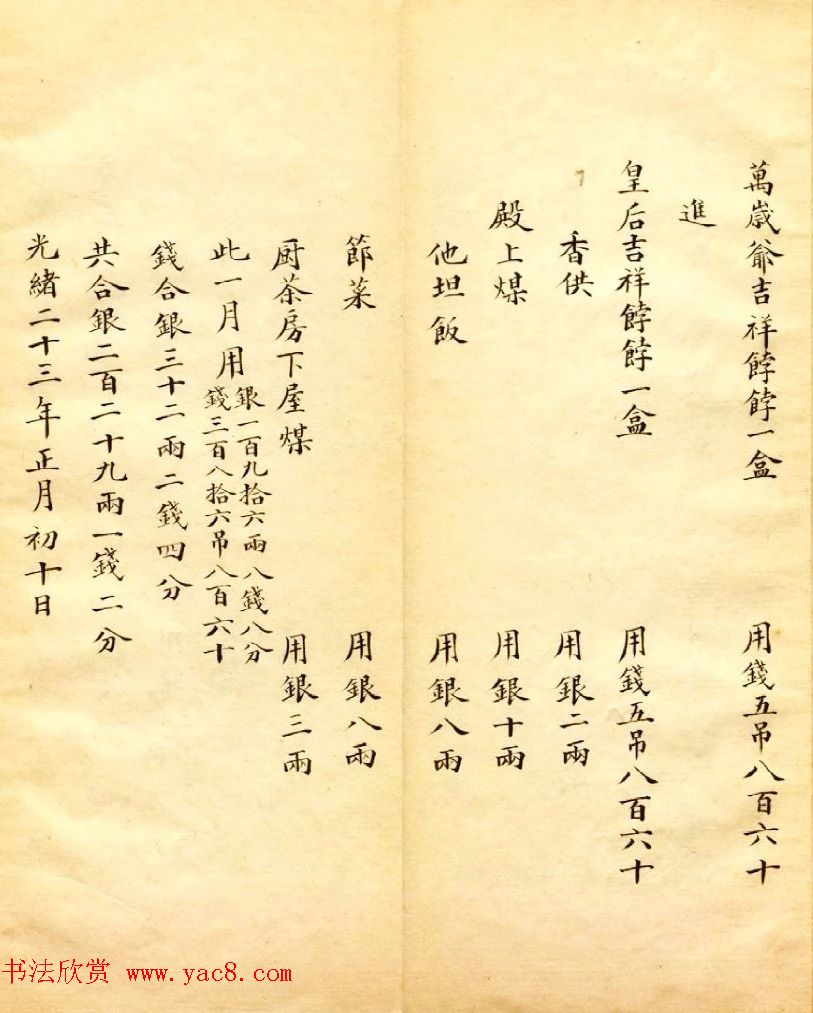 萬歲爺吉祥餑餑一盒 用錢五吊八百六十
進
皇后吉祥餑餑一盒 用錢五吊八百六十
香供 用銀二兩
殿上煤 用銀十兩
他坦飯 用銀八兩
節菜 用銀八兩
厨茶房下屋煤 用銀三兩
此一月用
銀一百九拾六兩八錢八分
錢三百八拾六吊八百六十
錢合銀三十二兩二錢四分
共合銀二百二十九兩一錢二分
光緒二十三年正月初十日
书法欣赏 www.yac8.com